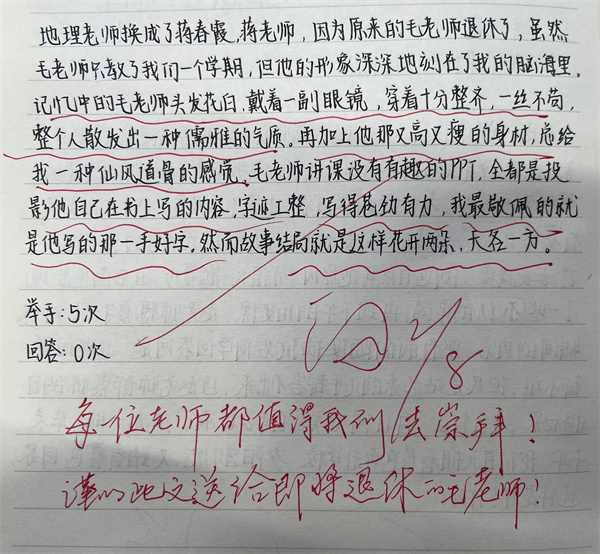 地理老师换成了蒋春霞蒋老师，因为原来的毛老师退休了，虽然
毛老师只教了我们一个学期，但他的形象深深地刻在了我的脑海里。
记忆中的毛老师头发花白，戴着一副眼镜，穿着十分整齐，一丝不苟，
整个人散发出一种儒雅的气质。再加上他那又高又瘦的身材，总给
我一种仙风道骨的感觉。毛老师讲课没有有趣的PPT，全都是投
影他自己在书上写的内容，字迹工整，写得苍劲有力，我最敬佩的就
是他写的那一手好字。然而故事结局就是这样花开两朵，天各一方。
举手：5次
回答：0次
2/8
每一位老师都值得我们去崇拜！
谨以此文送给即将退休的毛老师！